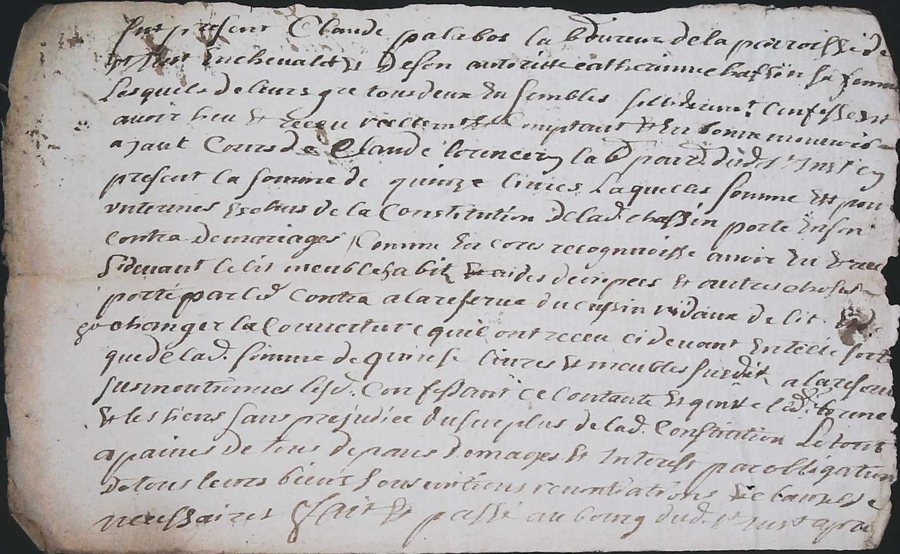 Fut present Claude palabos laboureur de la parroisse de
St Just en chevalet et de son autoritte catherinne chassin sa femme
Lesquels de leurs gre tous deux Ensembles sollidairemt. Confessent
avoir heu et receu reelemt et Comptant et En bonne monnoies
ajant Cours de Claude louncery lab. par dud. st Just cy
present la somme de quinze livres Laquelles somme est pour
un termes Escheus de la Constitution de lad. chassin porte En son
Contra de mariages, Comme En cores recognoisse avoir Eu et receu
cidevant le lit meuble habit et aides et autres choses
porte par led. Contra a la reserve du cussin ridaux de lit
changer la Couverture quil ont receu cidevant En telle sorte
que de lad. somme de quinse livres et meubles susdit a la reserve
susmentionnes lesd. Confessant ce Contante et quitte led.
et les siens sans prejudice du surplus de lad. Constitution Le tout
a paines de tous depans domages et Interest par obligation
De tous leurs biens sousmitions renontiations et clauses
necessaires fait et passé au bourg dud. st Just apres